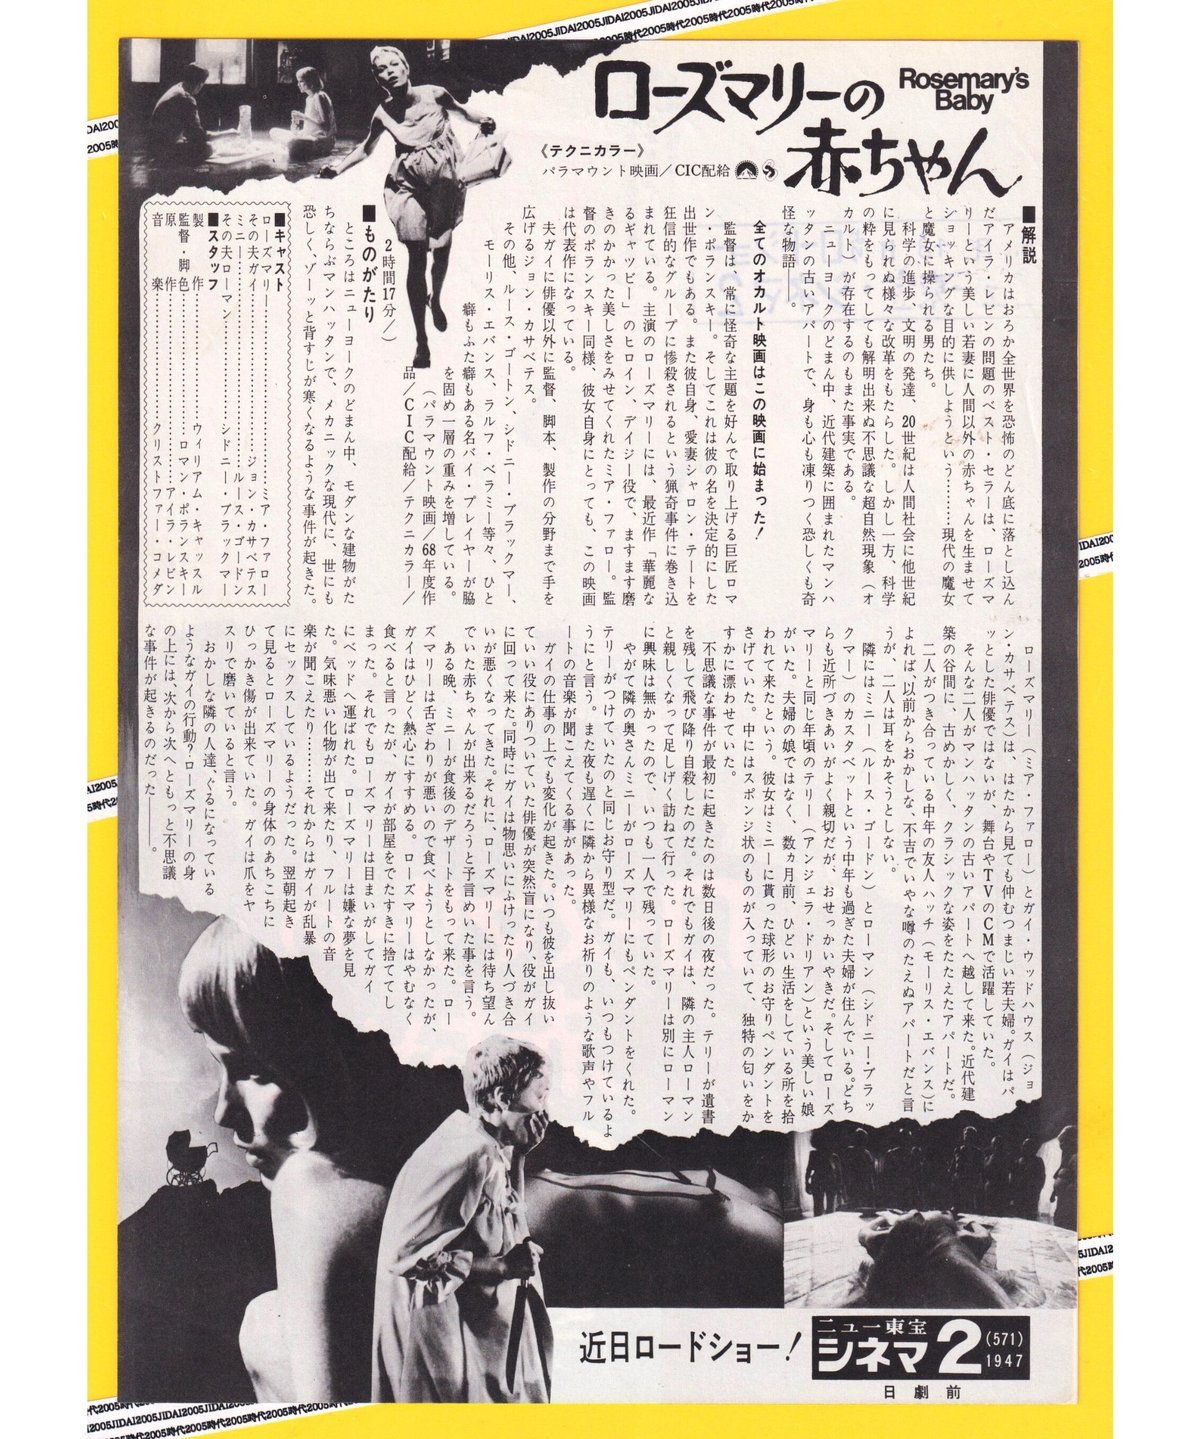 ローズマリーの
赤ちゃん
Rosemary's
Baby
《テクニカラー》
パラマウント映画／CIC配給
■解説
アメリカはおろか全世界を恐怖のどん底に落とし込ん
だアイラ・レビンの問題のベスト・セラーは、ローズマ
リーという美しい若妻に人間以外の赤ちゃんを生ませて
ショッキングな目的に供しようという………現代の魔女
と魔女に操られる男たち。
科学の進歩、文明の発達、20世紀は人間社会に他世紀
に見られぬ様々な改革をもたらした。しかし一方、科学
の粋をもってしても解明出来ぬ不思議な超自然現象（オ
カルト）が存在するのもまた事実である。
ニューヨークのどまん中、近代建築に囲まれたマンハ
ッタンの古いアパートで、身も心も凍りつく恐しくも奇
怪な物語――。
全てのオカルト映画はこの映画に始まった！
監督は、常に怪奇な主題を好んで取り上げる巨匠ロマ
ン・ポランスキー。そしてこれは彼の名を決定的にした
出世作でもある。また彼自身、愛妻シャロン・テートを
狂信的なグループに惨殺されるという猟奇事件に巻き込
まれている。主演のローズマリーには、最近作「華麗な
るギャツビー」のヒロイン、デイジー役で、ますます磨
きのかかった美しさをみせてくれたミア・ファロー。監
督のポランスキー同様、彼女自身にとっても、この映画
は代表作になっている。
夫ガイに俳優以外に監督、脚本、製作の分野まで手を
広げるジョン・カサベテス。
その他、ルース・ゴートン、シドニー・ブラックマー、
モーリス・エバンス、ラルフ・ベラミー等々、ひと
癖もふた癖もある名バイ・プレイヤーが脇
を固め一層の重みを増している。
（パラマウント映画／68年度作
品／CIC配給／テクニカラー／
2時間17分／）
■ものがたり
ところはニューヨークのどまん中、モダンな建物がた
ちならぶマンハッタンで、メカニックな現代に、世にも
恐しく、ゾーッと背すじが寒くなるような事件が起きた。
■キャスト
ローズマリー………ミア・ファロー
その夫ガイ………ジョン・カサベテス
ミニー………ルース・ゴードン
その夫ローマン………シドニー・ブラックマー
■スタッフ
製作………ウィリアム・キャッスル
監督・脚色………ロマン・ポランスキー
原作………アイラ・レビン
音楽………クリストファー・コメダ
ローズマリー（ミア・ファロー）とガイ・ウッドハウス（ジョ
ン・カサベテス）は、はたから見ても仲むつまじい若夫婦。ガイはパ
ッとした俳優ではないが、舞台やTVのCMで活躍していた。
そんな二人がマンハッタンの古いアパートへ越して来た。近代建
築の谷間に、古めかしく、クラシックな姿をたたえたアパートだ。
二人がつき合っている中年の友人ハッチ（モーリス・エバンス）に
よれば、以前からおかしな、不吉でいやな噂のたえぬアパートだと言
うが、二人は耳をかそうとしない。
隣にはミニー（ルース・ゴードン）とローマン（シドニー・ブラッ
クマー）のカスタベットという中年も過ぎた夫婦が住んでいる。どち
らも近所づきあいがよく親切だが、おせっかいやきだ。そしてローズ
マリーと同じ年頃のテリー（アンジェラ・ドリアン）という美しい娘
がいた。夫婦の娘ではなく、数ヵ月前、ひどい生活をしている所を拾
われて来たという。彼女はミニーに貰った球形のお守りペンダントを
さげていた。中にはスポンジ状のものが入っていて、独特の匂いをか
すかに漂わせていた。
不思議な事件が最初に起きたのは数日後の夜だった。テリーが遺書
を残して飛び降り自殺したのだ。それでもガイは、隣の主人ローマン
と親しくなって足しげく訪ねて行った。ローズマリーは別にローマン
に興味は無かったので、いつも一人で残っていた。
やがて隣の奥さんミニーがローズマリーにもペンダントをくれた。
テリーがつけていたのと同じお守り型だ。ガイも、いつもつけているよ
うにと言う。また夜も遅くに隣から異様なお祈りのような歌声やフル
ートの音楽が聞こえてくる事があった。
ガイの仕事の上でも変化が起きた。いつも彼を出し抜い
ていい役にありついていた俳優が突然盲になり、役がガイ
に回って来た。同時にガイは物思いにふけったり人づき合
いが悪くなってきた。それに、ローズマリーには待ち望ん
でいた赤ちゃんが出来るだろうと予言めいた事を言う。
ある晩、ミニーが食後のデザートをもって来た。ロー
ズマリーは舌ざわりが悪いので食べようとしなかったが、
ガイはひどく熱心にすすめる。ローズマリーはやむなく
食べると言ったが、ガイが部屋をでたすきに捨ててし
まった。それでもローズマリーは目まいがしてガイ
にベッドへ運ばれた。ローズマリーは嫌な夢を見
た。気味悪い化物が出て来たり、フルートの音
楽が聞こえたり………それからはガイが乱暴
にセックスしているようだった。翌朝起き
て見るとローズマリーの身体のあちこちに
ひっかき傷が出来ていた。ガイは爪をヤ
スリで磨いていると言う。
おかしな隣の人達、ぐるになっている
ようなガイの行動？ローズマリーの身
の上には、次から次へともっと不思議
な事件が起きるのだった――。
近日ロードショー！
ニュー東宝
シネマ2
(571)
1947
日劇前
JIDAI2005時代2005